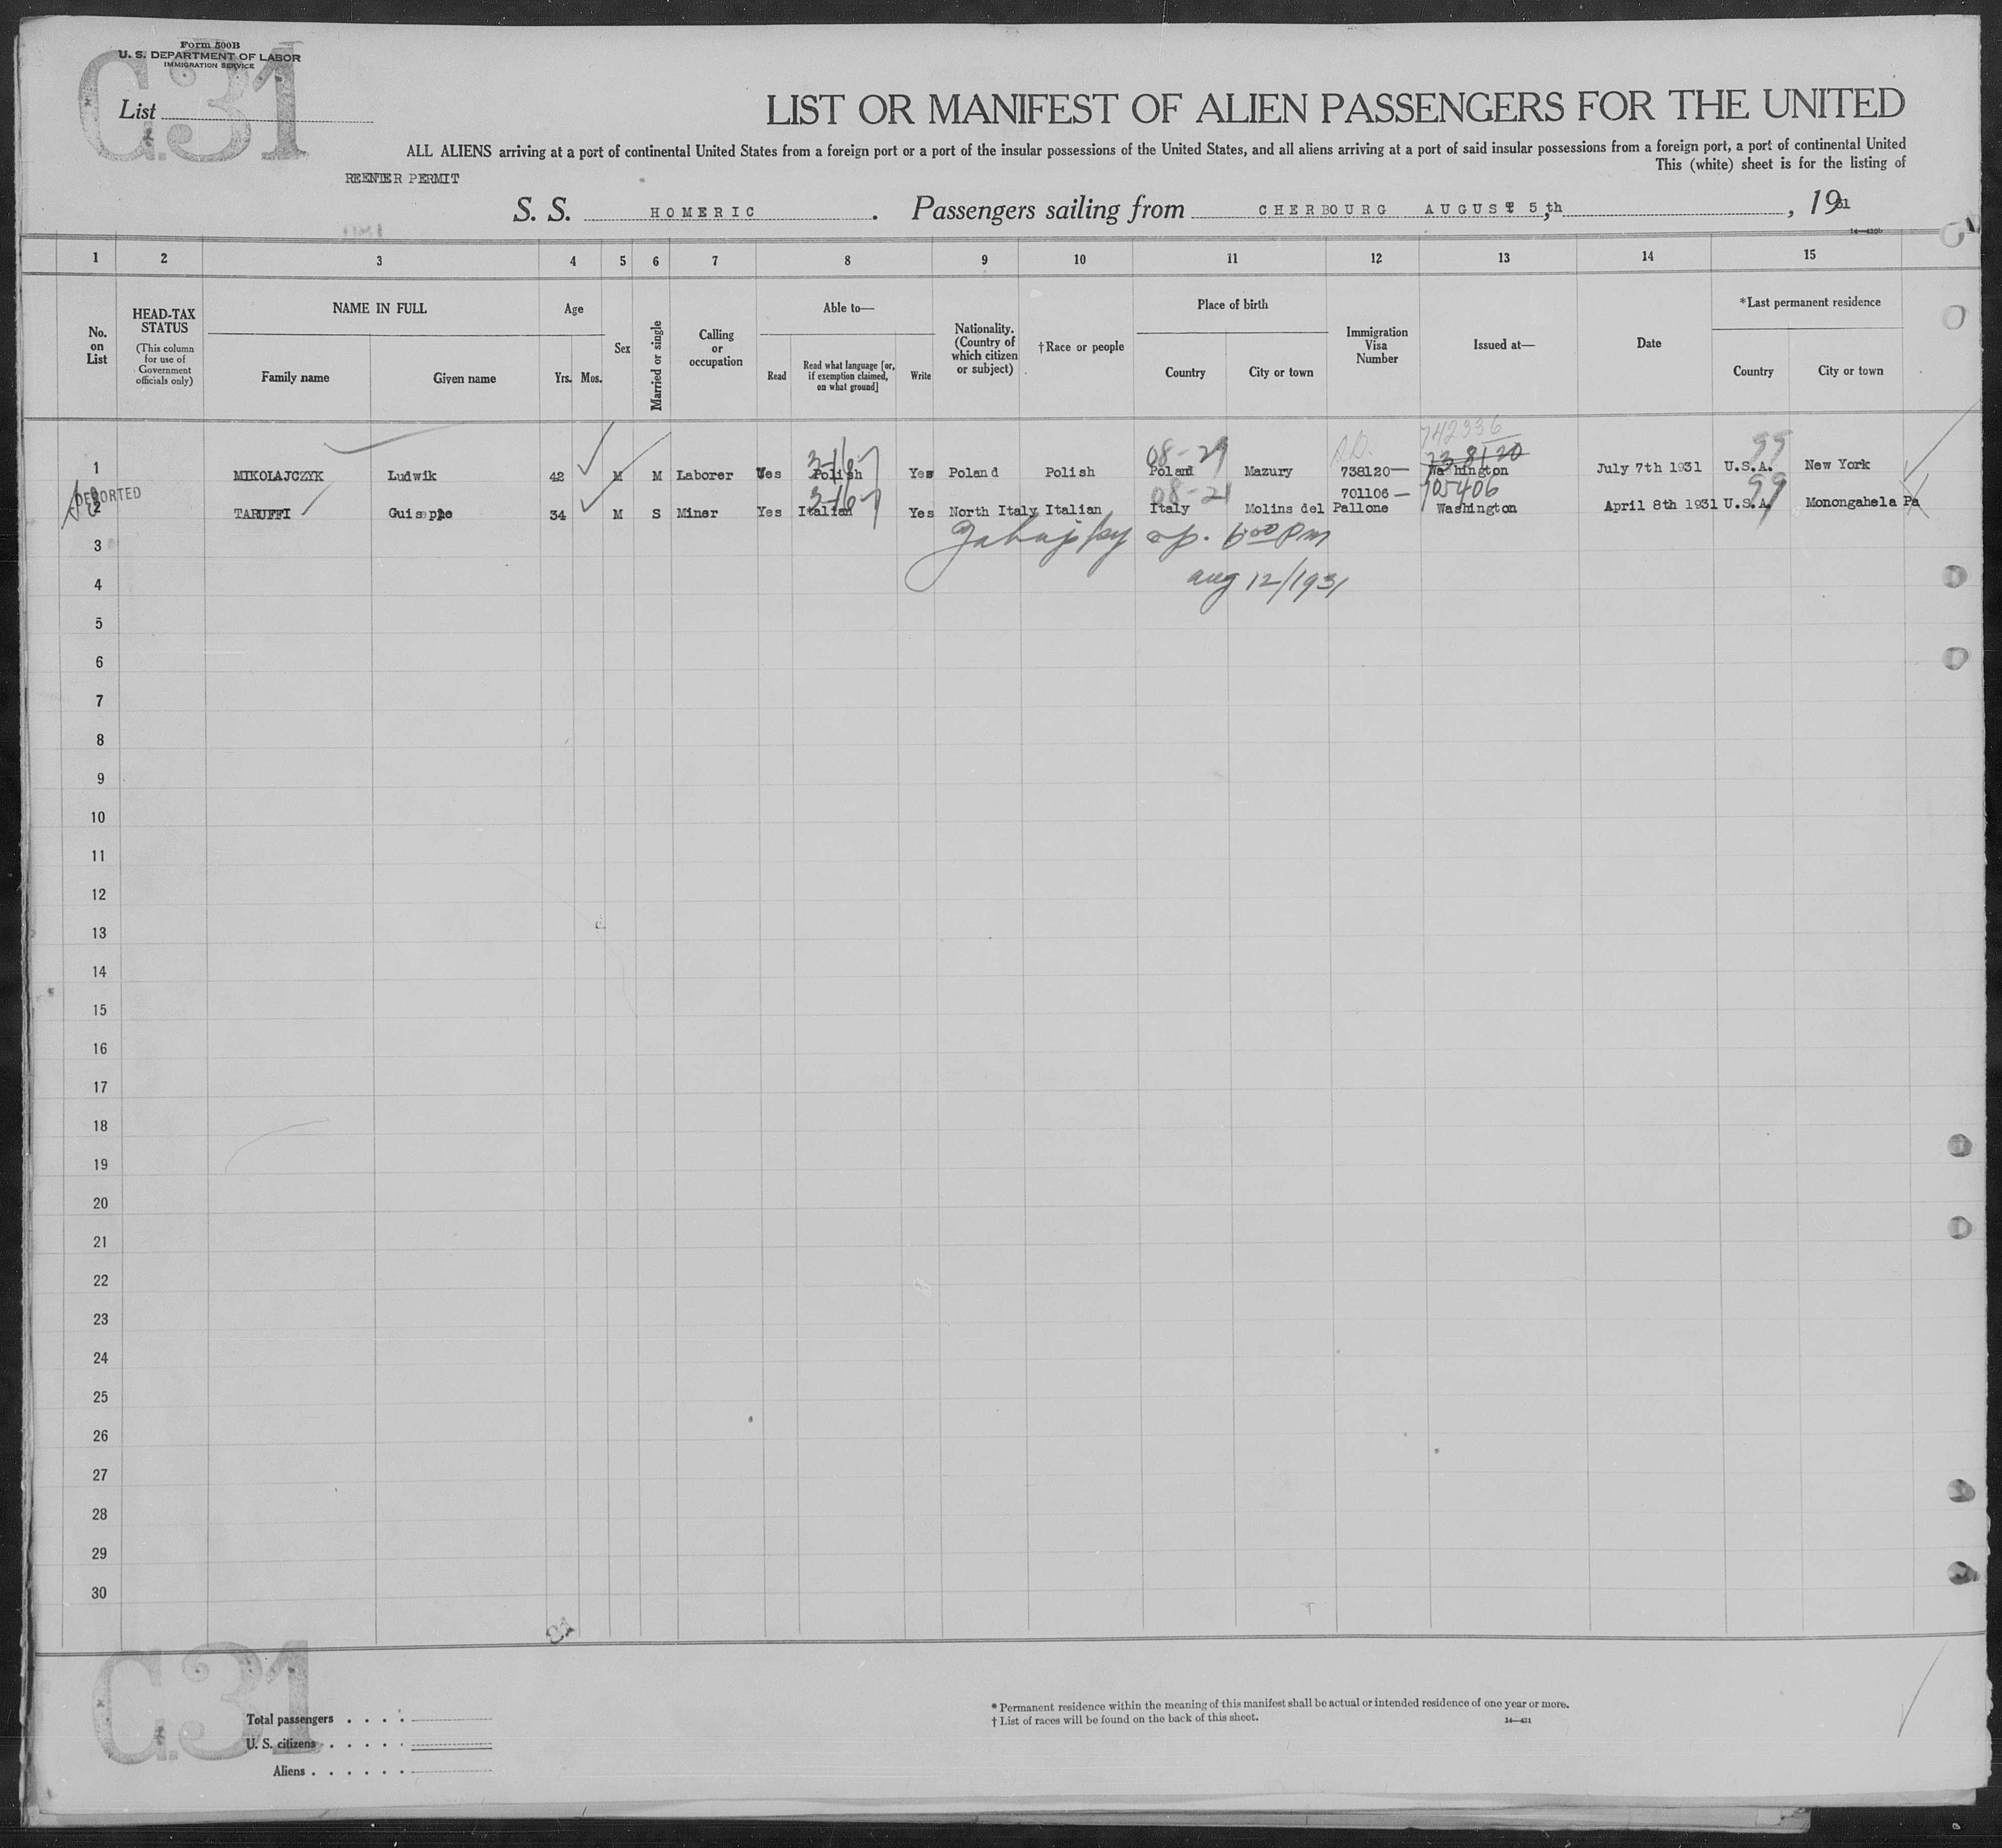 Form 500B
U. S. DEPARTMENT OF LABOR
IMMIGRATION SERVICE
C.31
List
LIST OR MANIFEST OF ALIEN PASSENGERS FOR THE UNITED
ALL ALIENS arriving at a port of continental United States from a foreign port or a port of the insular possessions of the United States, and all aliens arriving at a port of said insular possessions from a foreign port, a port of continental United
This (white) sheet is for the listing of
REENTER PERMIT
S. S. HOMERIC. Passengers sailing from CHERBOURG AUGUST 5,th, 1931
14—420b
1 2 3 4 5 6 7 8 9 10 11 12 13 14 15
No. on List
HEAD-TAX STATUS
(This column for use of Government officials only)
NAME IN FULL
Family name Given name
Age
Yrs. Mos.
Sex
Married or single
Calling or occupation
Able to—
Read
Read what language [or, if exemption claimed, on what ground]
Write
Nationality. (Country of which citizen or subject)
†Race or people
Place of birth
Country City or town
Immigration Visa Number
Issued at—
Date
*Last permanent residence
Country City or town
742336
3-16 08-29 738120 99
1 MIKOLAJCZYK Ludwik 42 M M Laborer Yes Polish Yes Poland Polish Poland Mazury 738120— Washington July 7th 1931 U.S.A. New York
DEPORTED
3-16 08-21 705406 99
2 TARUFFI Guiseppe 34 M S Miner Yes Italian Yes North Italy Italian Italy Molins del Pallone 701106— Washington April 8th 1931 U.S.A. Monongahela Pa
3 6 00 Pm
4 aug 12/1931
5
6
7
8
9
10
11
12
13
14
15
16
17
18
19
20
21
22
23
24
25
26
27
28
29
30
C.31
Total passengers . . . .
U. S. citizens . . . . .
Aliens . . . . . .
* Permanent residence within the meaning of this manifest shall be actual or intended residence of one year or more.
† List of races will be found on the back of this sheet.
14—421